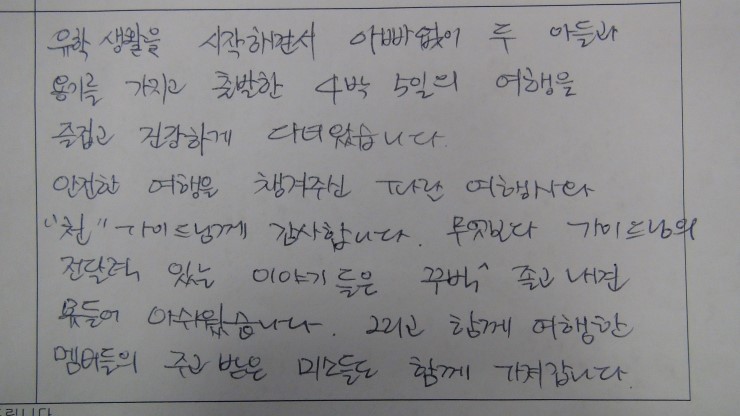 유학 생활을 시작해면서 아빠없이 두 아들과
용기를 가지고 출발한 4박 5일의 여행을
즐겁고 건강하게 다녀왔습니다.
안전한 여행을 챙겨주신 파란 여행사와
"천" 가이드님께 감사합니다. 무엇보다 가이드님의
전달력 있는 이야기들은 꾸벅^ 졸고 내견
못들어 아쉬웠습니다. 그리고 함께 여행한
멤버들의 주고 받은 미소들도 함께 가져갑니다.
드립니다